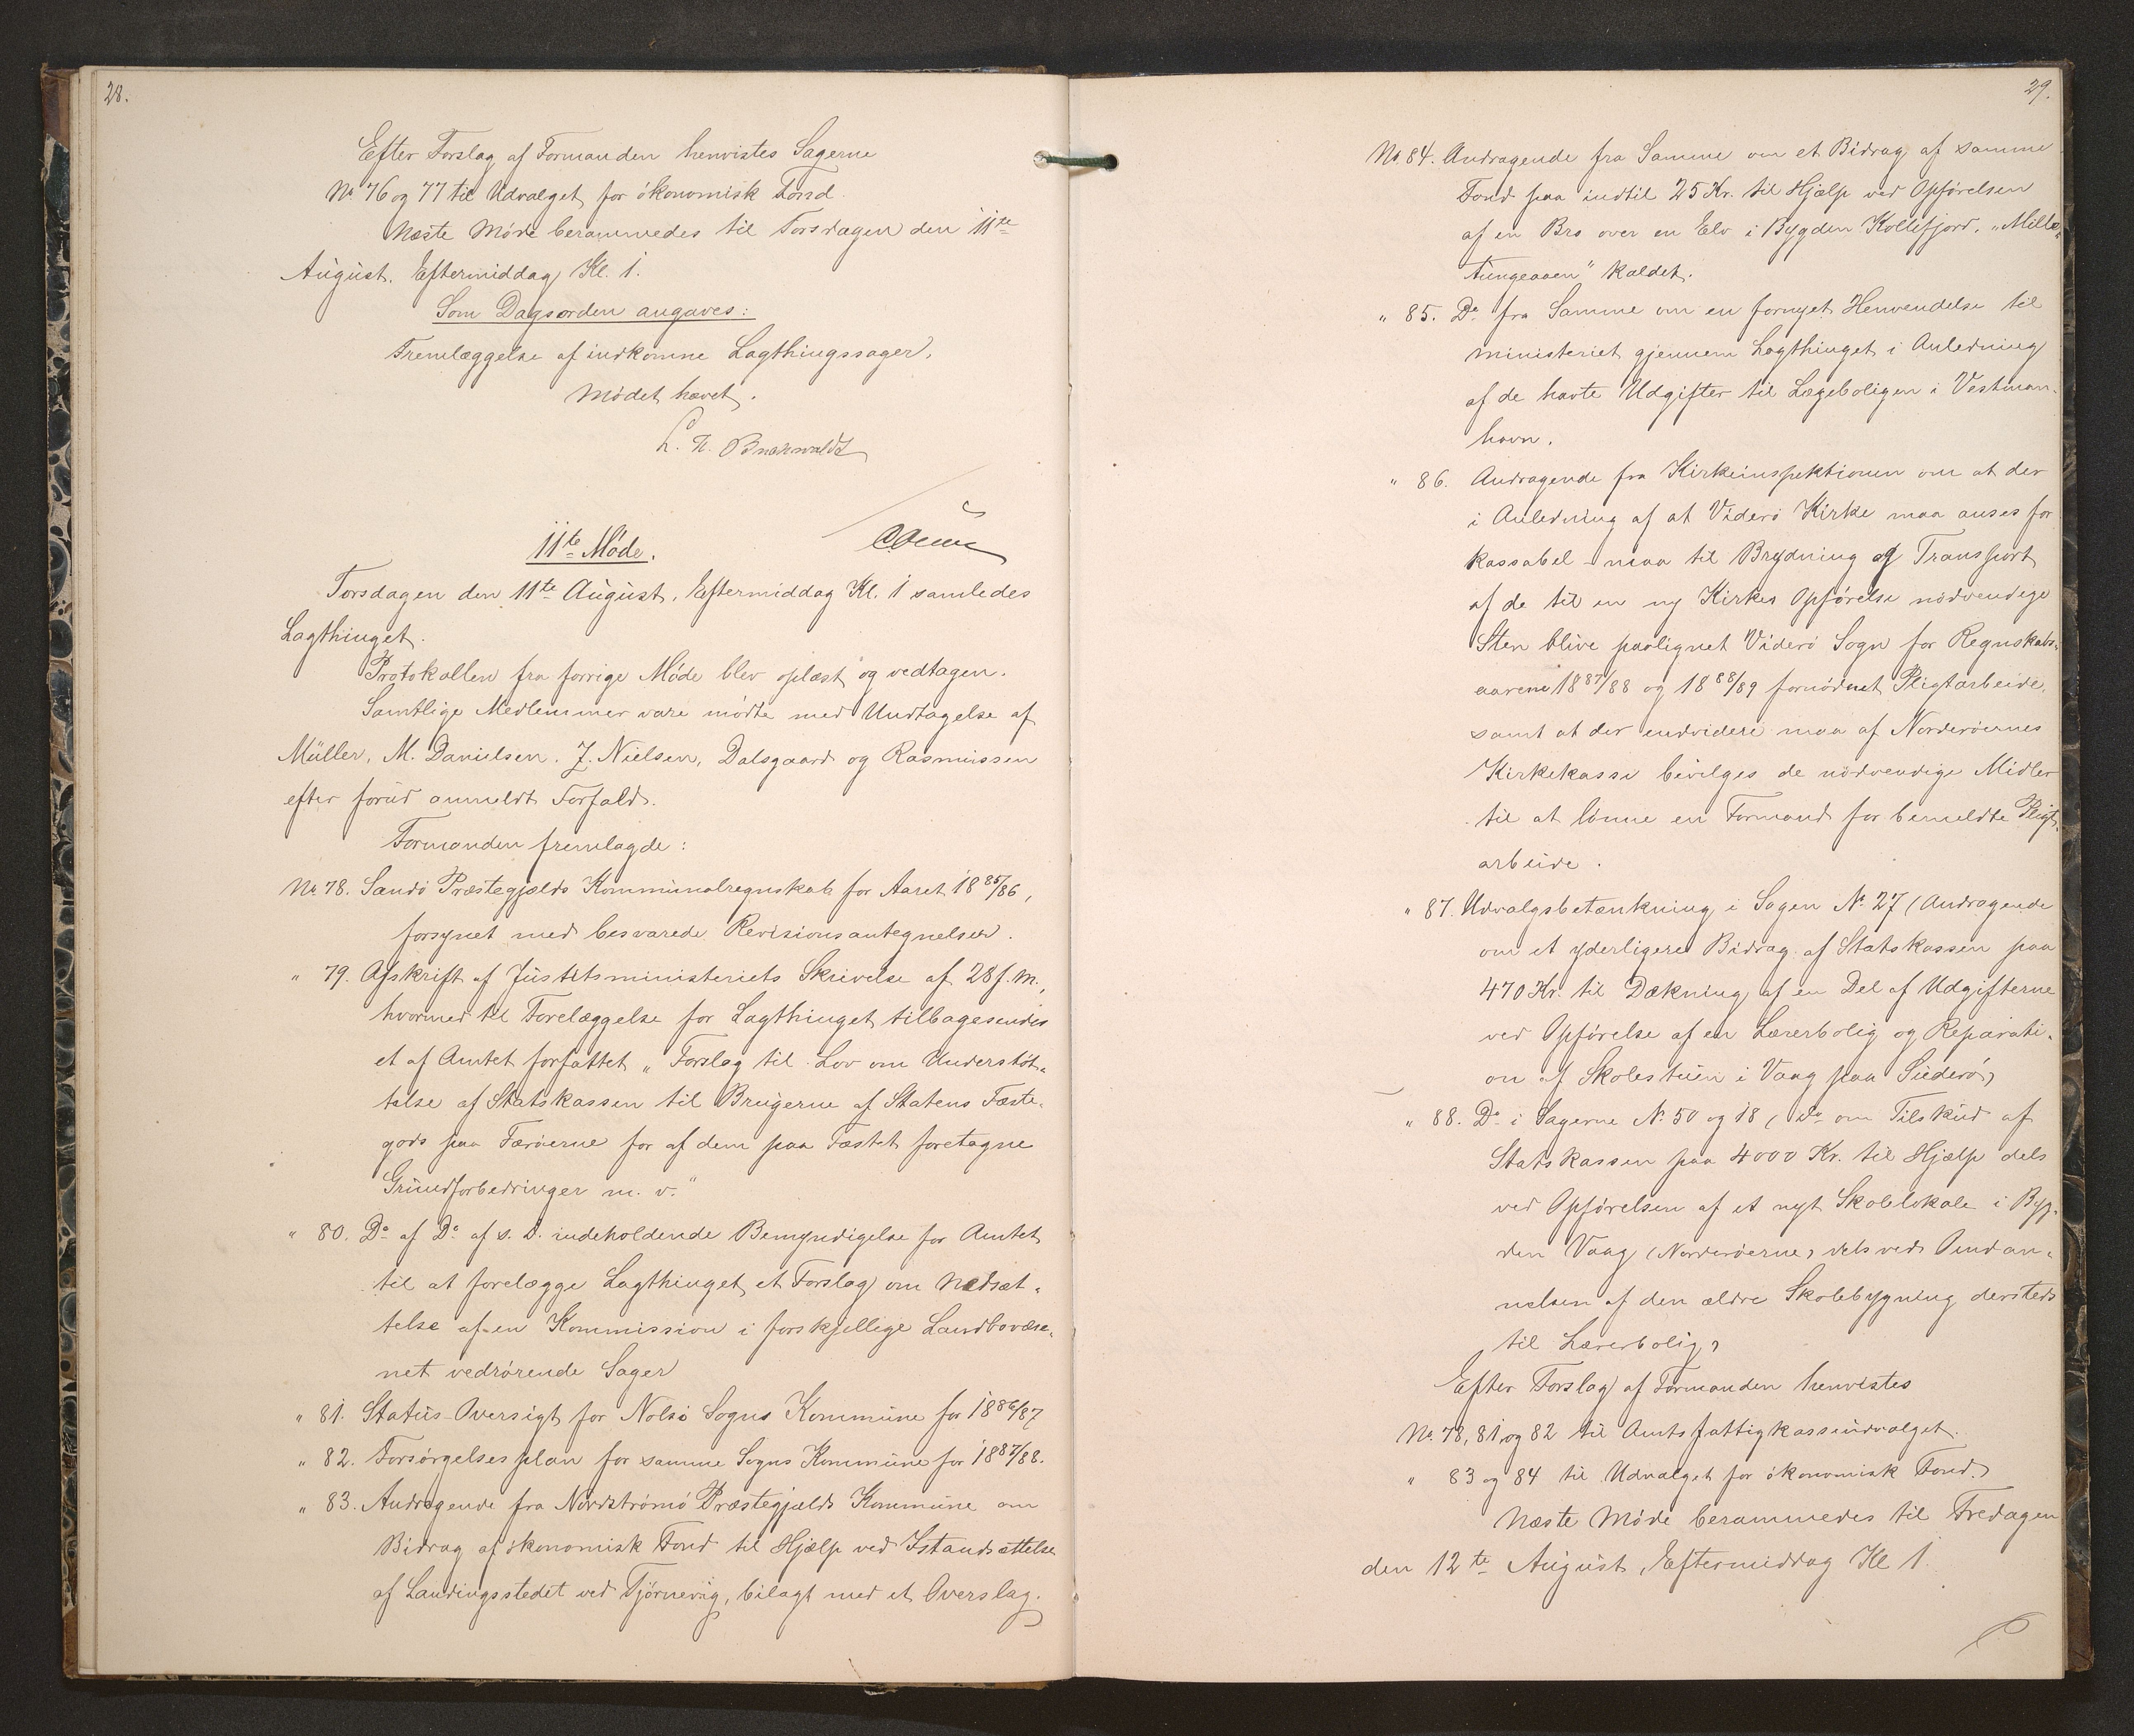 28.
Efter Forslag af Formanden henvistes Sagerne
No 76 og 77 til Udvalget for økonomisk Fond.
Næste Møde berammedes til Torsdagen den 11te
August. Eftermiddag Kl. 1.
Som Dagsorden angaves:
Fremlæggelse af indkomne Lagthingssager.
Mødet hævet.
11te Møde.
Torsdagen den 11te August, Eftermiddag Kl. 1 samledes
Lagthinget.
Protokollen fra forrige Møde blev oplæst og vedtagen.
Samtlige Medlemmer vare mødte med Undtagelse af
Müller, M. Danielsen, J. Nielsen, Dalsgaard og Rasmussen
efter forud anmeldt Forfald.
Formanden fremlagde:
No. 78. Sandø Præstegjælds Kommunalregnskab for Aaret 1885/86,
forsynet med besvarede Revisionsantegnelser.
" 79. Afskrift af Justitsministeriets Skrivelse af 28 f. M.,
hvormed til Forelæggelse for Lagthinget tilbagesendes
et af Amtet forfattet "Forslag til Lov om Understøt-
telse af Statskassen til Brugerne af Statens Fæste-
gods paa Færøerne for af dem paa Fæstet foretagne
Grundforbedringer m. v."
" 80. Do af Do af s. D. indeholdende Bemyndigelse for Amtet
til at forelægge Lagthinget et Forslag om Nedsæt-
telse af en Kommission i forskjellige Landbovæse-
net vedrørende Sager
" 81. Status-Oversigt for Nolsø Sogns Kommune for 1886/87
" 82. Forsørgelsesplan for samme Sogns Kommune for 1887/88.
" 83. Andragende fra Nordstrømø Præstegjælds Kommune om
Bidrag af økonomisk Fond til Hjælp ved Istandsættelse
af Landingsstedet ved Tjørnevig, bilagt med et Overslag.
29.
No. 84. Andragende fra Samme om et Bidrag af samme
Fond paa indtil 25 Kr. til Hjælp ved Opførelsen
af en Bro over en Elv i Bygden Kollefjord, "Mille-
tungeaaen" kaldet.
" 85. Do fra Samme om en fornyet Henvendelse til
Ministeriet gjennem Lagthinget i Anledning
af de havte Udgifter til Lægeboligen i Vestman-
havn.
" 86. Andragende fra Kirkeinspektionen om at der
i Anledning af at Viderø Kirke maa anses for
kassabel - maa til Brydning og Transport
af de til en ny Kirkes Opførelse nødvendige
Sten blive paalignet Viderø Sogn for Regnskabs-
aarene 1887/88 og 1888/89 fornødent Pligtarbeide,
samt at der endvidere maa af Norderøernes
Kirkekasse bevilges de nødvendige Midler
til at lønne en Formand for bemeldte Pligt-
arbeide.
" 87. Udvalgsbetænkning i Sagen No 27 (Andragende
om et yderligere Bidrag af Statskassen paa
470 Kr. til Dækning af en Del af Udgifterne
ved Opførelse af en Lærerbolig og Reparati-
on af Skolestuen i Vaag paa Suderø)
" 88. Do i Sagerne No 50 og 18 (Do om Tilskud af
Statskassen paa 4000 Kr. til Hjælp dels
ved Opførelsen af et nyt Skolelokale i Byg-
den Vaag (Norderøerne) dels ved Omdan-
nelsen af den ældre Skolebygning dersteds
til Lærerbolig)
Efter Forslag af Formanden henvistes
No. 78, 81 og 82 til Amtsfattigkasseudvalget.
" 83 og 84 til Udvalget for økonomisk Fond.
Næste Møde berammedes til Fredagen
den 12te August, Eftermiddag Kl 1.